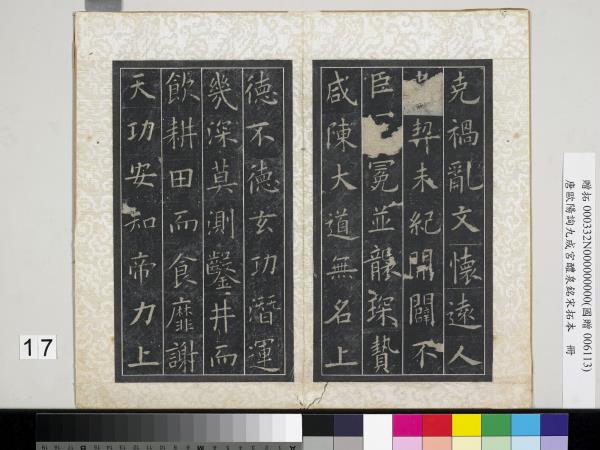 克禍亂文懷遠人
契未紀開闢不
臣冕並襲琛贄
咸陳大道無名上
德不德玄功潛運
幾深莫測鑿井而
飲耕田而食靡謝
天功安知帝力上
贈拓 000332N000000000(國贈 006113)
唐歐陽詢九成宮醴泉銘宋拓本 冊
17